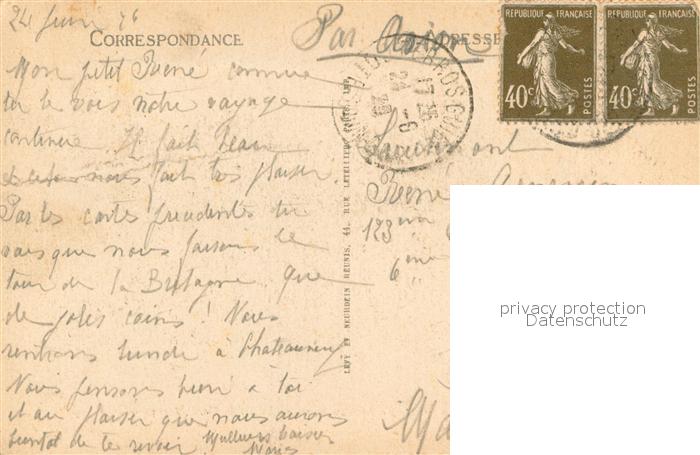 24 Juin 26
CORRESPONDANCE
Par Avion
ADRESSE
RÉPUBLIQUE FRANÇAISE
40c
POSTES
RÉPUBLIQUE FRANÇAISE
40c
POSTES
Mon petit René comme
tu le vois notre voyage
continue Il fait beau
nous fait très plaisir
Par les cartes précédentes tu
vois que nous faisons le
tour de la Bretagne que
de jolis coins ! Nous
rentrons lundi à Chateauneuf
Nous pensons bien a toi
et au plaisir que nous aurons
bientot de te revoir baisers
LEVY ET NEURDEIN REUNIS, 44, RUE LETELLIER, PARIS. IMP.
17
24
-6
26
Lieutenant
René
123
6
privacy protection
Datenschutz